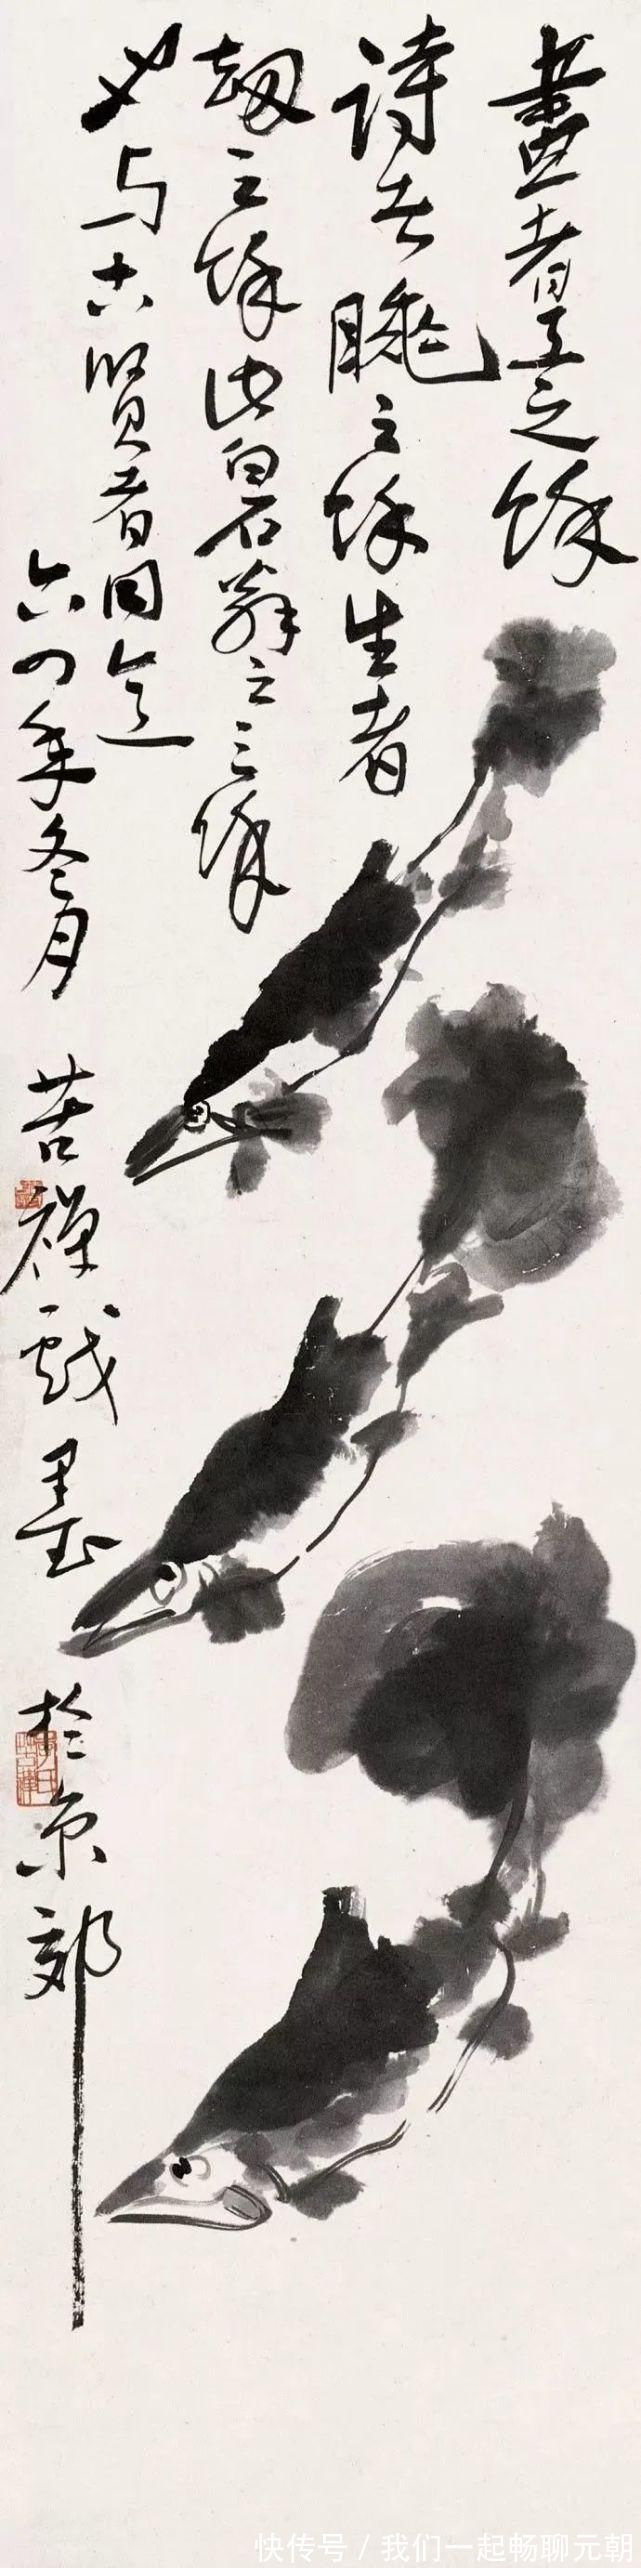 畫者工之餘
詩者睡之餘生者
劫之餘此白石翁之三餘
与古賢者同
六四年冬月 苦禪戲墨 於京郊
快传号/我们一起畅聊元朝